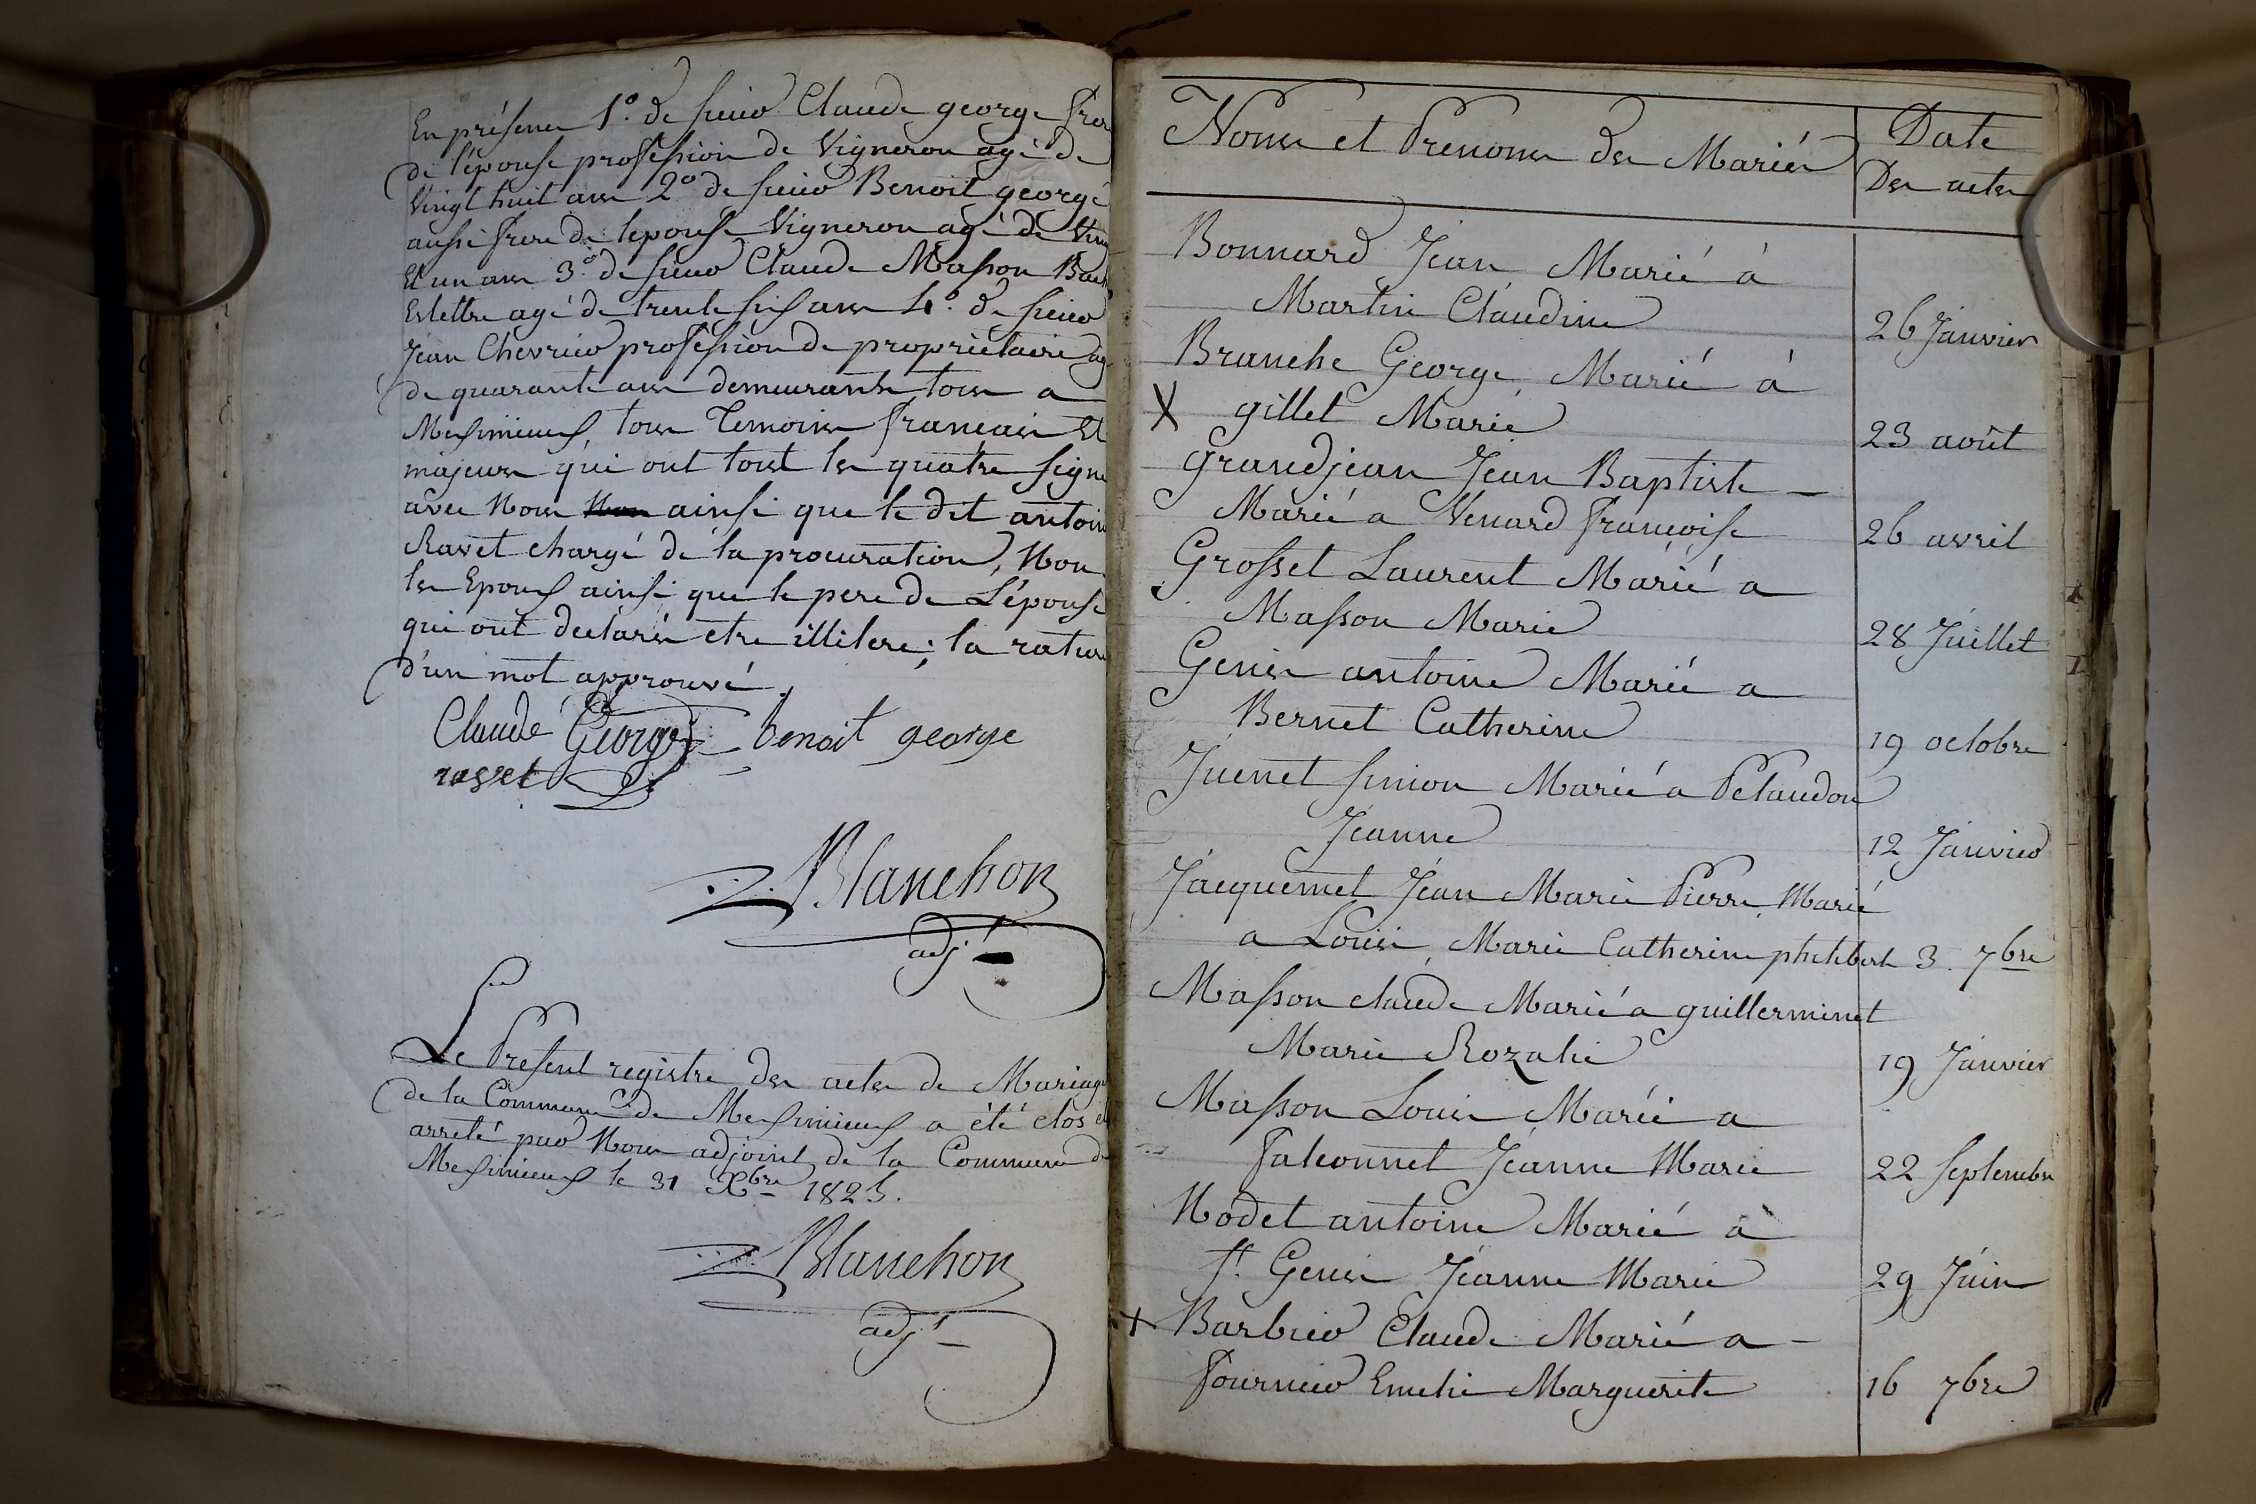 En présence 1.° de sieur Claude george frere
de l'épouse profession de Vigneron agé de
Vingt huit ans 2.° de sieur Benoit george
aussi frere de lepouse Vigneron agé de Vingt
Et un ans 3.° de sieur Claude Masson
agé de trente six ans 4.° de sieur
Jean Chevrier profession de propriétaire agé
de quarante ans demeurants tous a
Messimieux, tous Temoins francais Et
majeurs qui ont tout les quatre signé
avec Nous Non ainsi que le dit antoine
Ravet chargé de la procuration, Non
les Epoux ainsi que le pere de L'épouse
qui ont declarés etre illitere; la rature
d'un mot approuvé.
Claude George benoit george
ravet
Blanchon
adj.t
Le Present registre des actes de Mariage
de la Commune de Messimieux a été clos et
arreté par Nous adjoint de la Commune de
Messimieux le 31 Xbre 1825.
Blanchon
adj.t
Noms et Prenoms des Mariés
Date
Des actes
Bonnard Jean Marié à
Martin Claudine 26 Janvier
Branche George Marié à
X gillet Marie 23 août
Grandjean Jean Baptiste
Marié a Venard francoise 26 avril
Grosset Laurent Marié a
Masson Marie 28 Juillet
Genis antoine Marié a
Bernet Catherine 19 octobre
Juenet simon Marié a Pelaudon
Jeanne 12 Janvier
Jacquemet Jean Marie Pierre Marié
a Louise Marie Catherine philiberte 3. 7bre
Masson claude Marié a guillerminet
Marie Rozalie 19 Janvier
Masson Louis Marié a
falconnet Jeanne Marie 22 septembre
Nodet antoine Marié a
St. Genis Jeanne Marie 29 Juin
+ Barbier Claude Marié a
fournier Emelie Marguerite 16 7bre